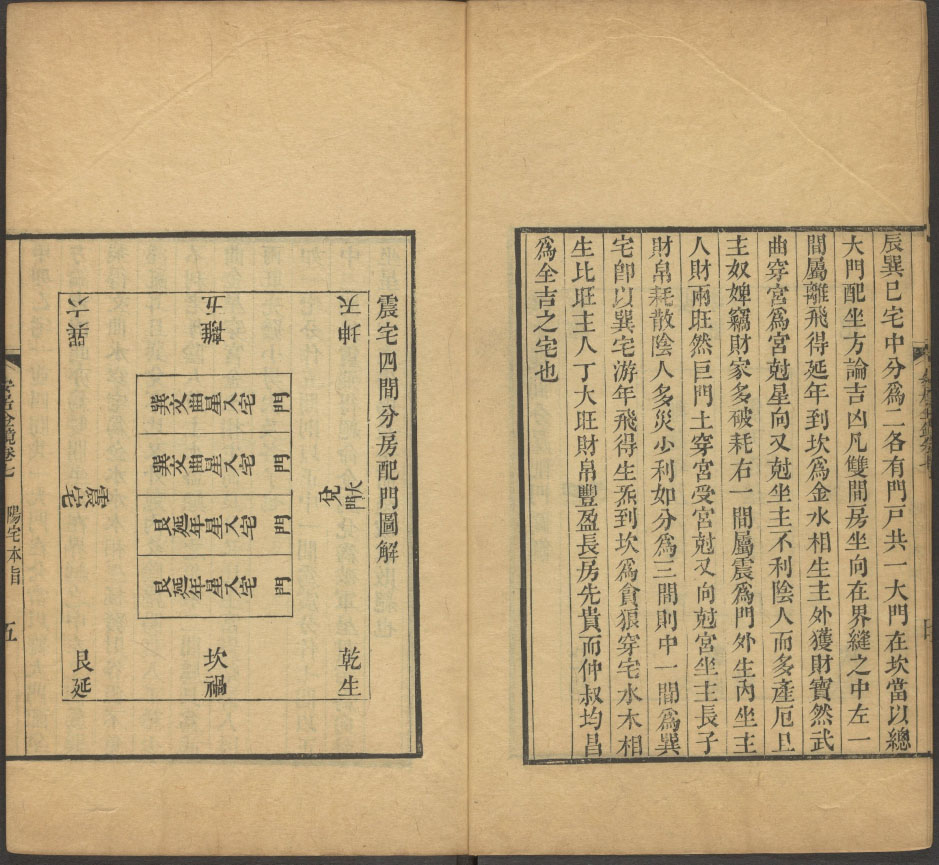 辰巽巳宅中分爲二各有門戸共一大門在坎當以總
大門配坐方論吉凶凡雙間房坐向在界縫之中左一
間屬離飛得延年到坎爲金水相生主外獲財寶然武
曲穿宮爲宮尅星向又尅坐主不利陰人而多產厄且
主奴婢竊財家多破耗右一間屬震爲門外生內坐主
人財兩旺然巨門土穿宮受宮尅又向尅宮坐主長子
財帛耗散陰人多災少利如分爲三間則中一間爲巽
宅卽以巽宅游年飛得生炁到坎爲貪狼穿宅水木相
生比旺主人丁大旺財帛豐盈長房先貴而仲叔均昌
爲全吉之宅也
震宅四間分房配門圖解
坤天
兌門火
乾生
離五
坎禍
門
門
門
門
巽交曲星入宅
巽交曲星入宅
艮延年星入宅
艮延年星入宅
巽六
震宅
艮延
陽宅本旨
五